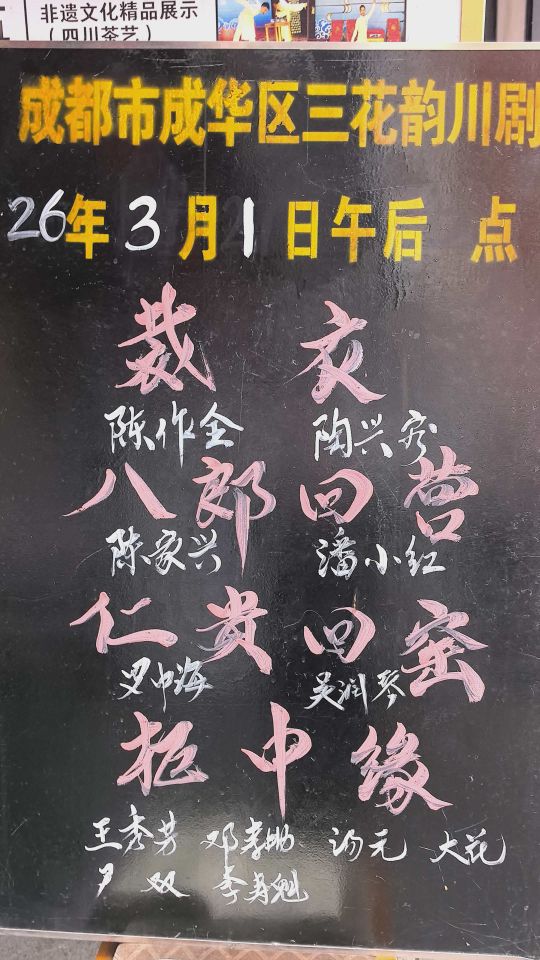 非遗文化精品展示
（四川茶艺）
成都市成华区三花韵川剧
26年3月1日午后 点
裁衣
陈作全 陶兴容
八郎回营
陈家兴 潘小红
仁贵回窑
罗中海 吴润琴
柜中缘
王秀芳 邓孝助 汤元 大花
尹双 李身魁